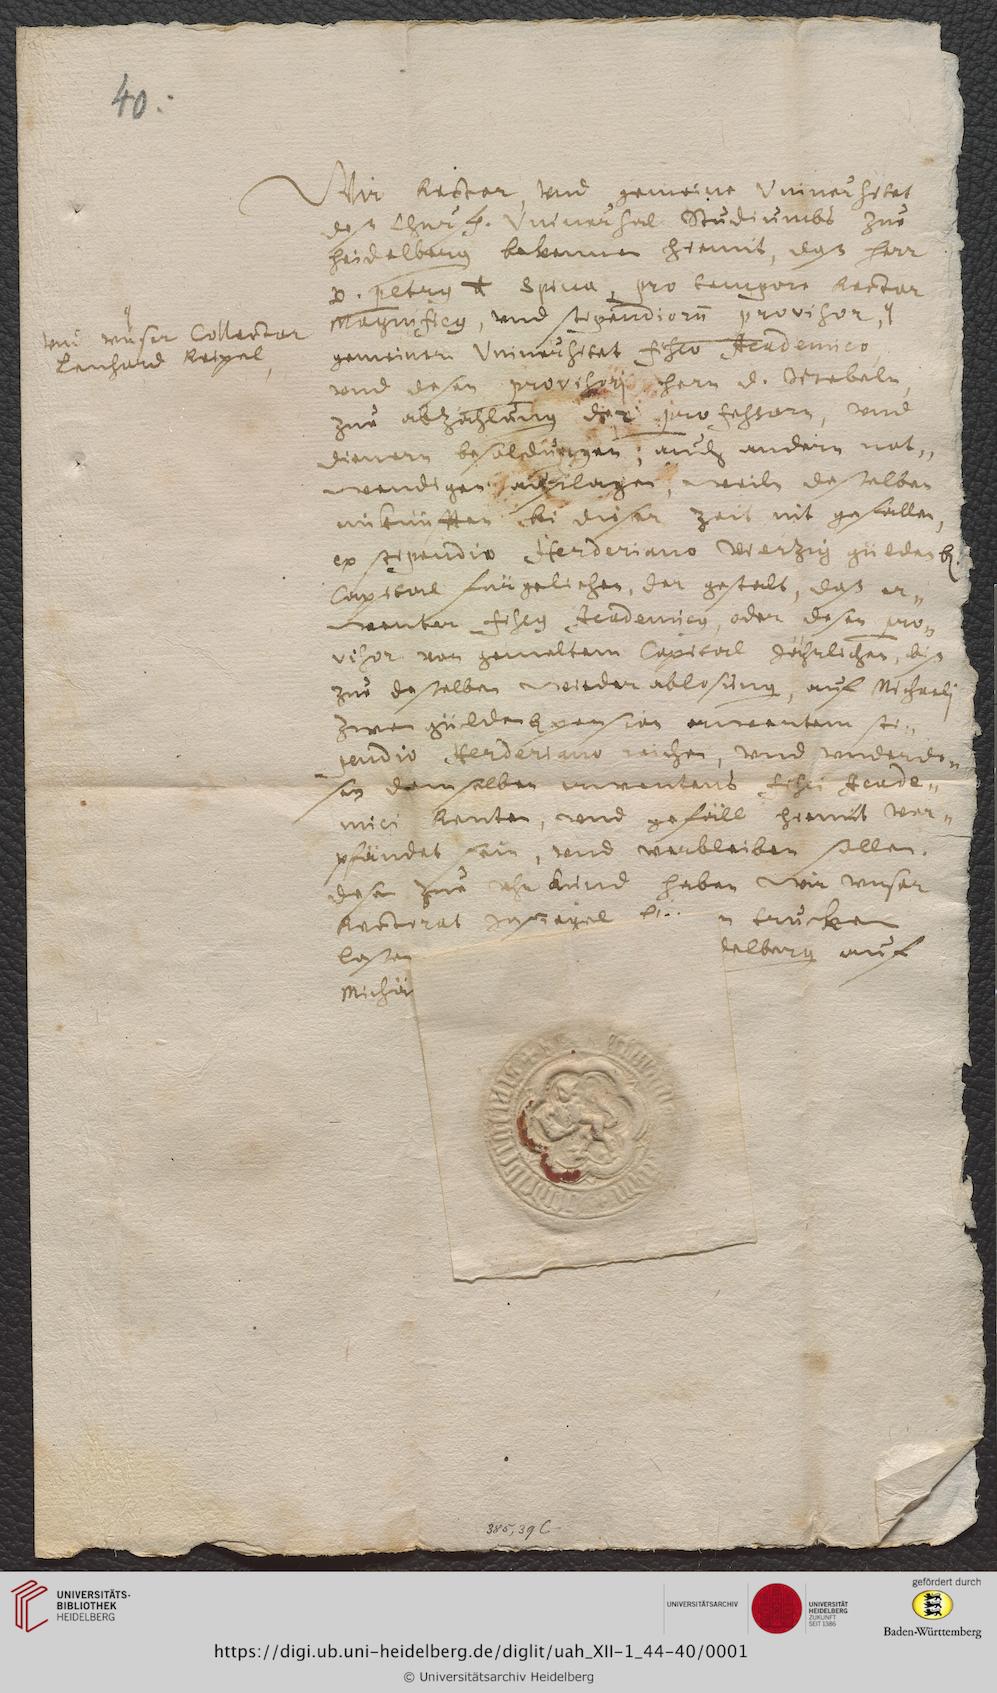 40.
Wir Rector, vnd gemeine Vniuersitet
des Churf. Vniuersal Studiumbs zue
Heidelberg bekennen hiemit, das Herr
D. Petrus de Spina, pro tempore Rector
Magnificus, vnd stipendiorum provisor,
vnd vnser Collector
Lenhard Reipel,
gemeiner Vniuersitet fisco Academico,
vnd desen provisori, hern d.
zue abzahlung der professorn, vnd
dienern besoldungen, auch andern not„
wendigen auslagen, weiln desselben
einkunfften bei dieser zeit nit gefallen,
ex stipendio Herderiano vierzig gulden
Capital furgeliehen, der gestalt, das er„
wenter fiscus Academicus, oder desen pro„
visor von gemeltem Capital Jährlichen, bis
zue desselben wiederablosung, auf Michaelis
zwen gulden pension erwentem sti„
pendio Herderiano reichen, vnd vnderde„
sen demselben erwentens fisci Acade„
mici Renten, vnd gefäll hiemit ver„
pfändet sein, vnd verbleiben sollen.
desen zue vhrkund haben wir vnser
Rectorat Insiegel trucken
lasen delberg auf
Michä
385,39 C
UNIVERSITÄTS-
BIBLIOTHEK
HEIDELBERG
UNIVERSITÄTSARCHIV
UNIVERSITÄT
HEIDELBERG
ZUKUNFT
SEIT 1386
gefördert durch
Baden-Württemberg
https://digi.ub.uni-heidelberg.de/diglit/uah_XII-1_44-40/0001
© Universitätsarchiv Heidelberg